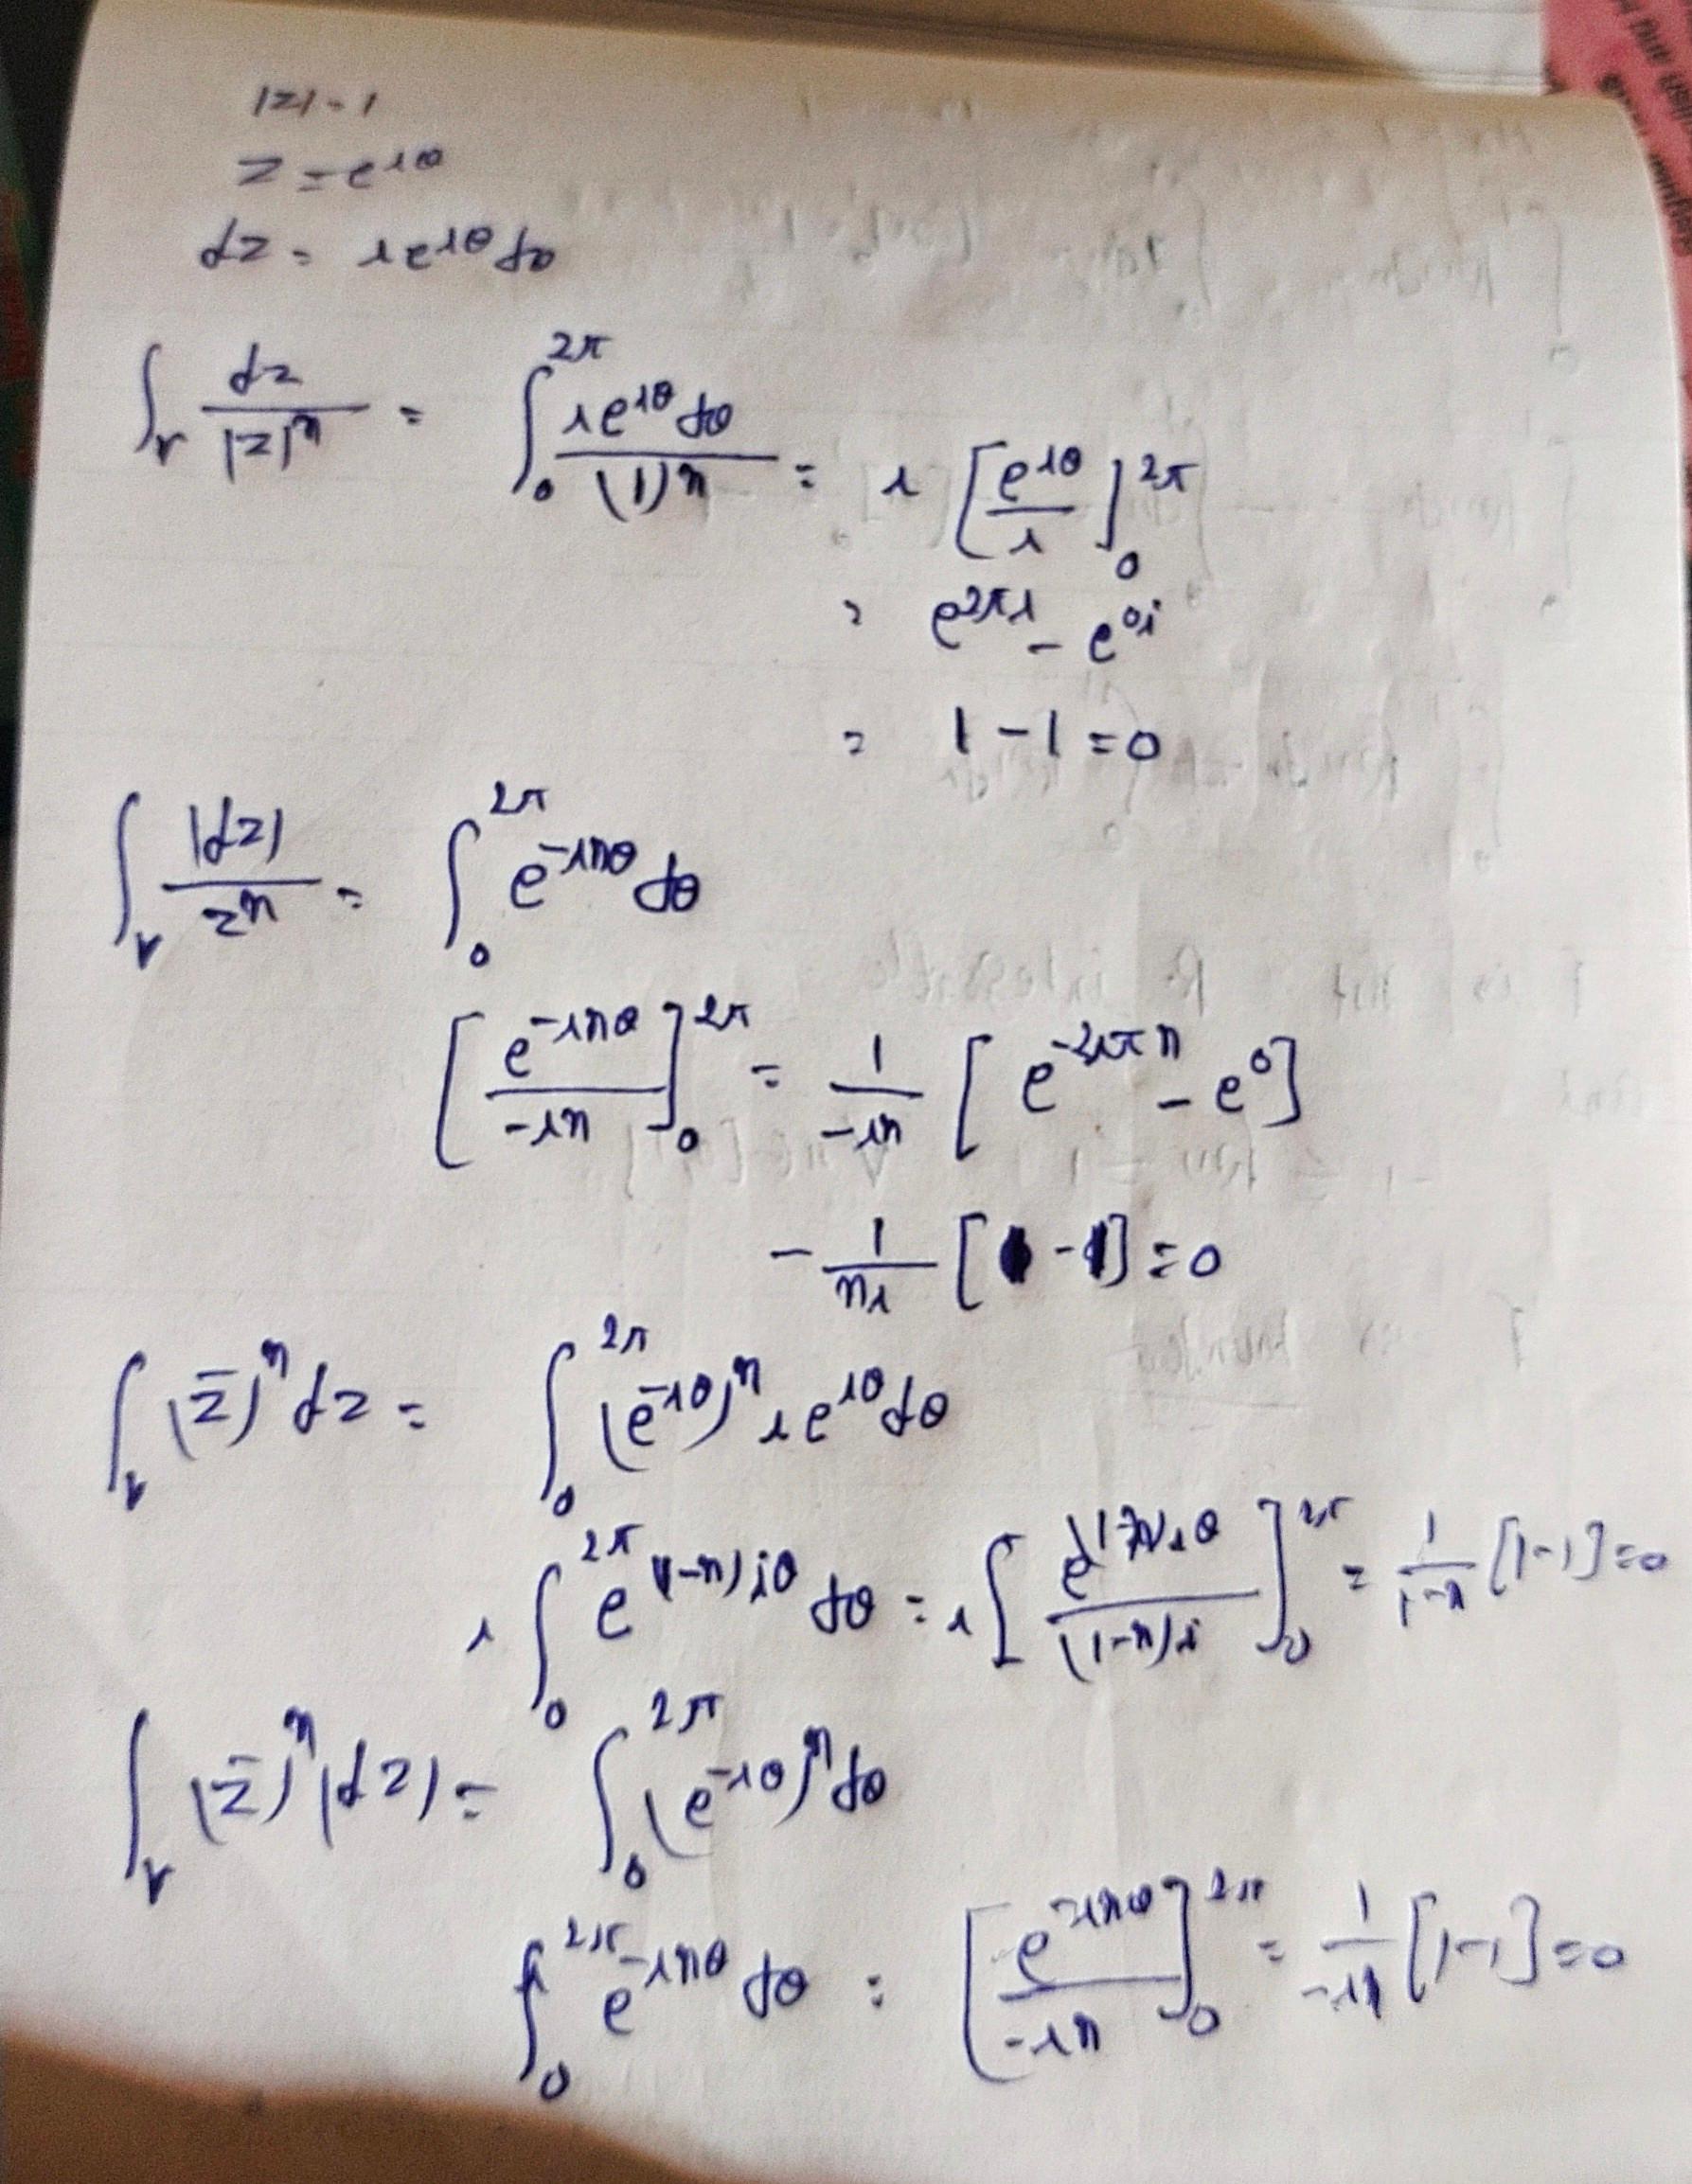 |z| = 1
z = e^{iθ}
dz = ie^{iθ} dθ
∫_γ dz/|z|^n = ∫_0^{2π} ie^{iθ} dθ/(1)^n = i [e^{iθ}/i]_0^{2π}
= e^{2πi} - e^{0i}
= 1 - 1 = 0
∫_γ |dz|/z^n = ∫_0^{2π} e^{-inθ} dθ
[e^{-inθ}/-in]_0^{2π} = 1/-in [e^{-2iπn} - e^0]
- 1/ni [1 - 1] = 0
∫_γ (z̄)^n dz = ∫_0^{2π} (e^{-iθ})^n ie^{iθ} dθ
i ∫_0^{2π} e^{(1-n)iθ} dθ = i [e^{(1-n)iθ}/(1-n)i]_0^{2π} = 1/1-n [1-1] = 0
∫_γ (z̄)^n |dz| = ∫_0^{2π} (e^{-iθ})^n dθ
∫_0^{2π} e^{-inθ} dθ = [e^{-inθ}/-in]_0^{2π} = 1/-in [1-1] = 0